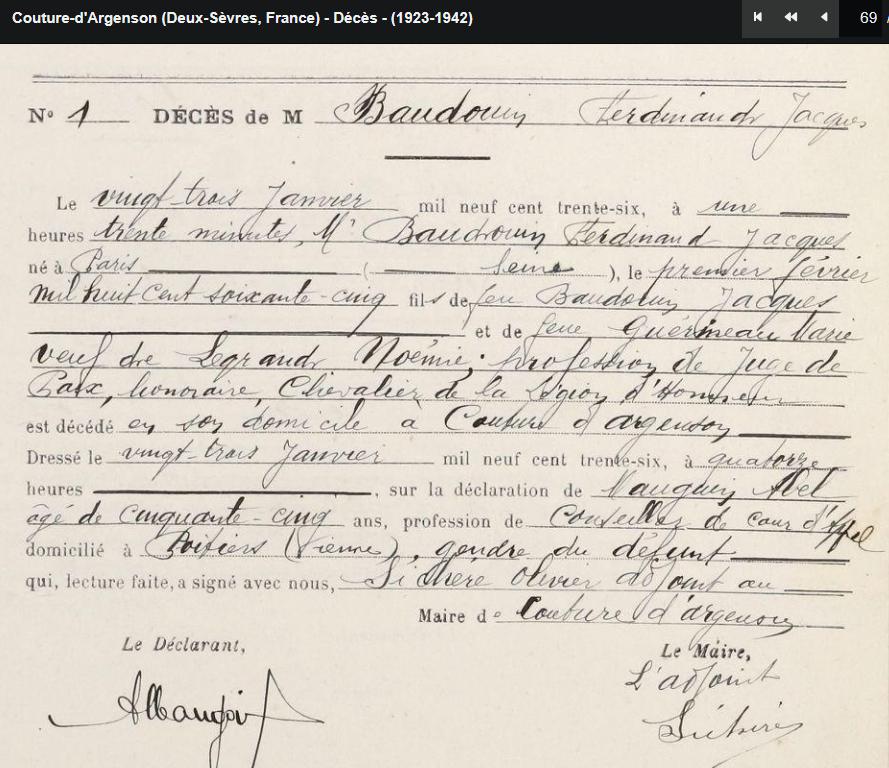 Couture-d'Argenson (Deux-Sèvres, France) - Décès - (1923-1942)
69
N° 1 DÉCÈS de M Baudouin Ferdinand Jacques
Le vingt-trois Janvier mil neuf cent trente-six, à une
heures trente minutes, Mr Baudouin Ferdinand Jacques
né à Paris ( Seine ), le premier février
mil huit cent soixante-cinq fils de feu Baudouin Jacques
et de feue Guérineau Marie
veuf de Legrand Noémie; profession de Juge de
Paix, honoraire, Chevalier de la Légion d'Honneur
est décédé en son domicile à Couture d'argenson
Dressé le vingt-trois Janvier mil neuf cent trente-six, à quatorze
heures , sur la déclaration de Mauguin Abel
âgé de cinquante-cinq ans, profession de Conseiller de cour d'Appel
domicilié à Poitiers (Vienne), gendre du défunt
qui, lecture faite, a signé avec nous, Olivier adjoint au
Maire de Couture d'argenson
Le Déclarant,
Le Maire,
L'adjoint
AMauguin